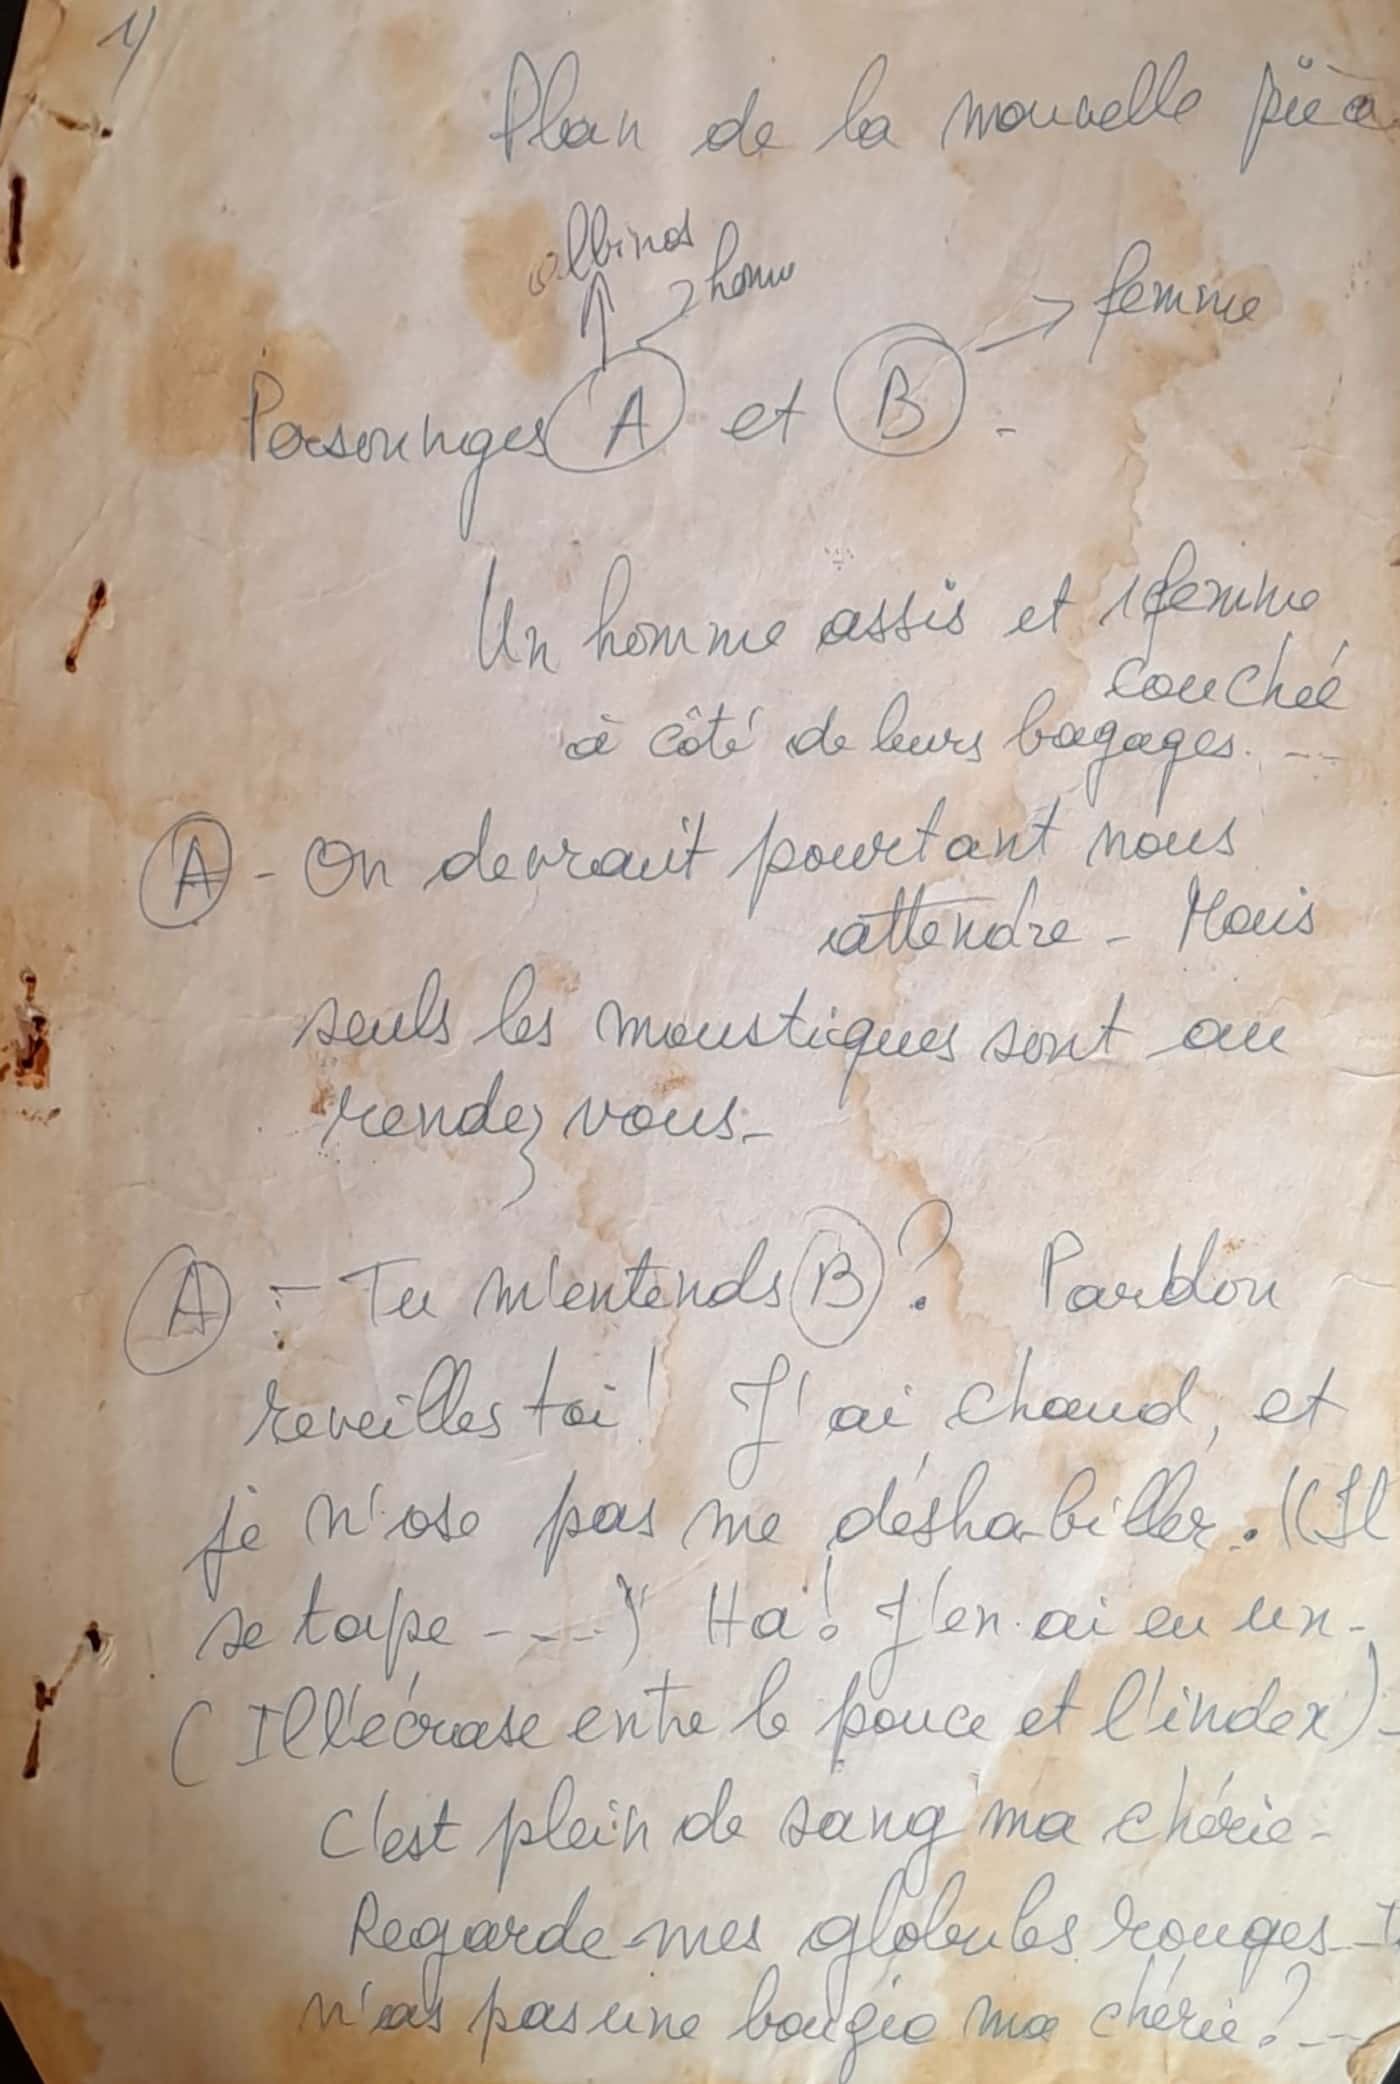 1/
Plan de la nouvelle pièc
albinos
homme
femme
Personnages A et B -
Un homme assis et 1 femme
couchée
à côté de leurs bagages. --
A - On devrait pourtant nous
attendre - Mais
seuls les moustiques sont au
rendez vous -
A :- Tu m'entends B ? Pardon
reveilles toi ! J'ai chaud, et
je n'ose pas me déshabiller. ((Il
se tape ----) Ha ! J'en ai eu un -
(Il l'écrase entre le pouce et l'index) -
C'est plein de sang ma chérie -
Regarde mes globules rouges -
n'as pas une bougie ma chérie ? --